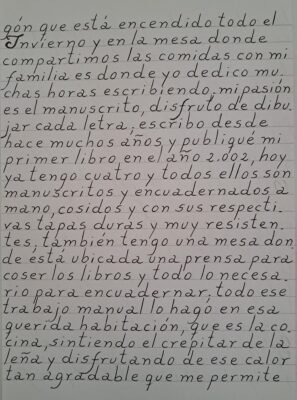 gón que está encendido todo el
Invierno y en la mesa donde
compartimos las comidas con mi
familia es donde yo dedico mu.
chas horas escribiendo, mi pasión
es el manuscrito, disfruto de dibu.
jar cada letra, escribo desde
hace muchos años y publiqué mi
primer libro, en el año 2.002, hoy
ya tengo cuatro y todos ellos son
manuscritos y encuadernados a
mano, cosidos y con sus respecti.
vas tapas duras y muy resisten.
tes, también tengo una mesa don.
de está ubicada una prensa para
coser los libros y todo lo necesa.
rio para encuadernar, todo ese
trabajo manual lo hago en esa
querida habitación, que es la co.
cina, sintiendo el crepitar de la
leña y disfrutando de ese calor
tan agradable que me permite